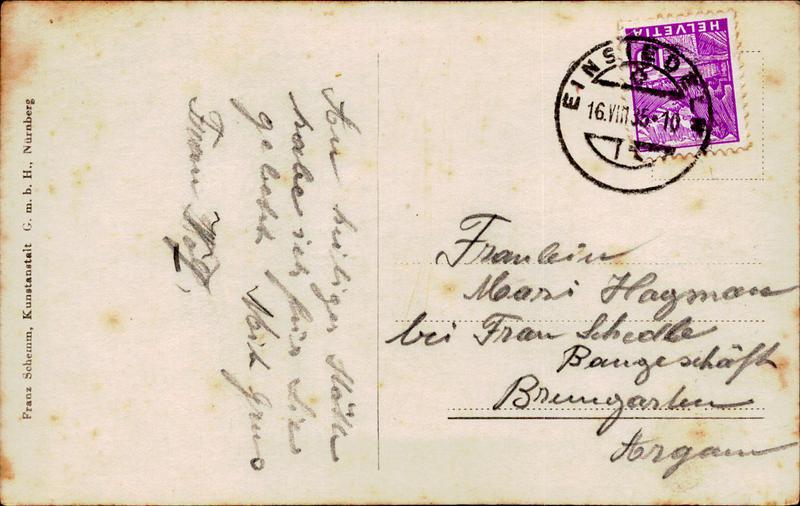 Franz Schemm, Kunstanstalt G. m. b. H., Nürnberg
An heiliger Stätte
habe ich für Sie
gebetet Mit Gruss
Frau
HELVETIA
EINSIEDELN
16.VIII.35.-10
Fraulein
Mari Hagman
bei Frau Schedle
Baugeschäft
Bremgarten
Argau